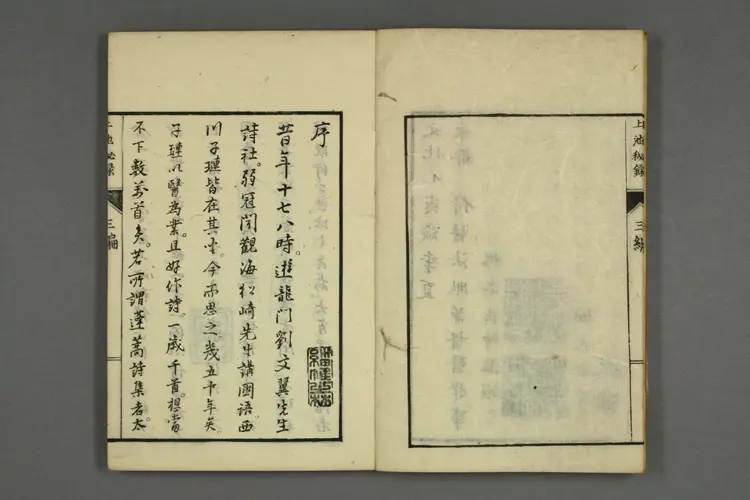 上池秘錄
三編
序
昔年十七八時。遊龍門劉文翼先生
詩社。弱冠聞觀海松崎先生講國語。西
川子璉皆在其坐。今而思之。幾五十年矣。
子璉以醫為業。且好作詩。一歲千首。想當
不下數萬首矣。若所謂蓬蒿詩集者。太
上池秘錄
三編